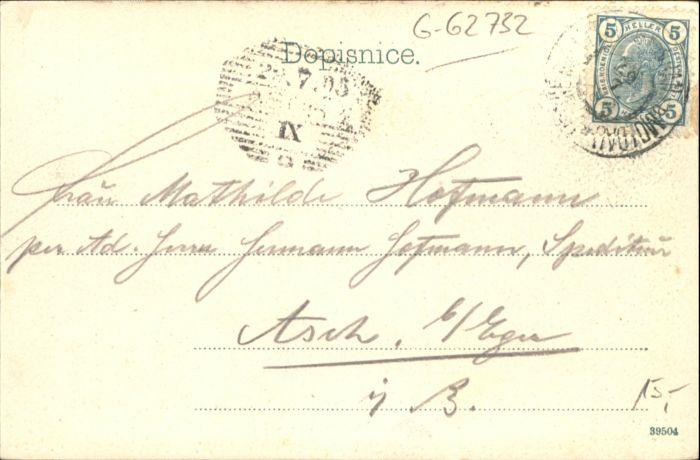 G-62732
Dopisnice.
5 HELLER 5
5 5
7.03
IX
Frau Mathilde Hofmann
per Ad. Herrn Hermann Hofmann, Spediteur
Asch. b/Eger
i/ B.
15,-
39504